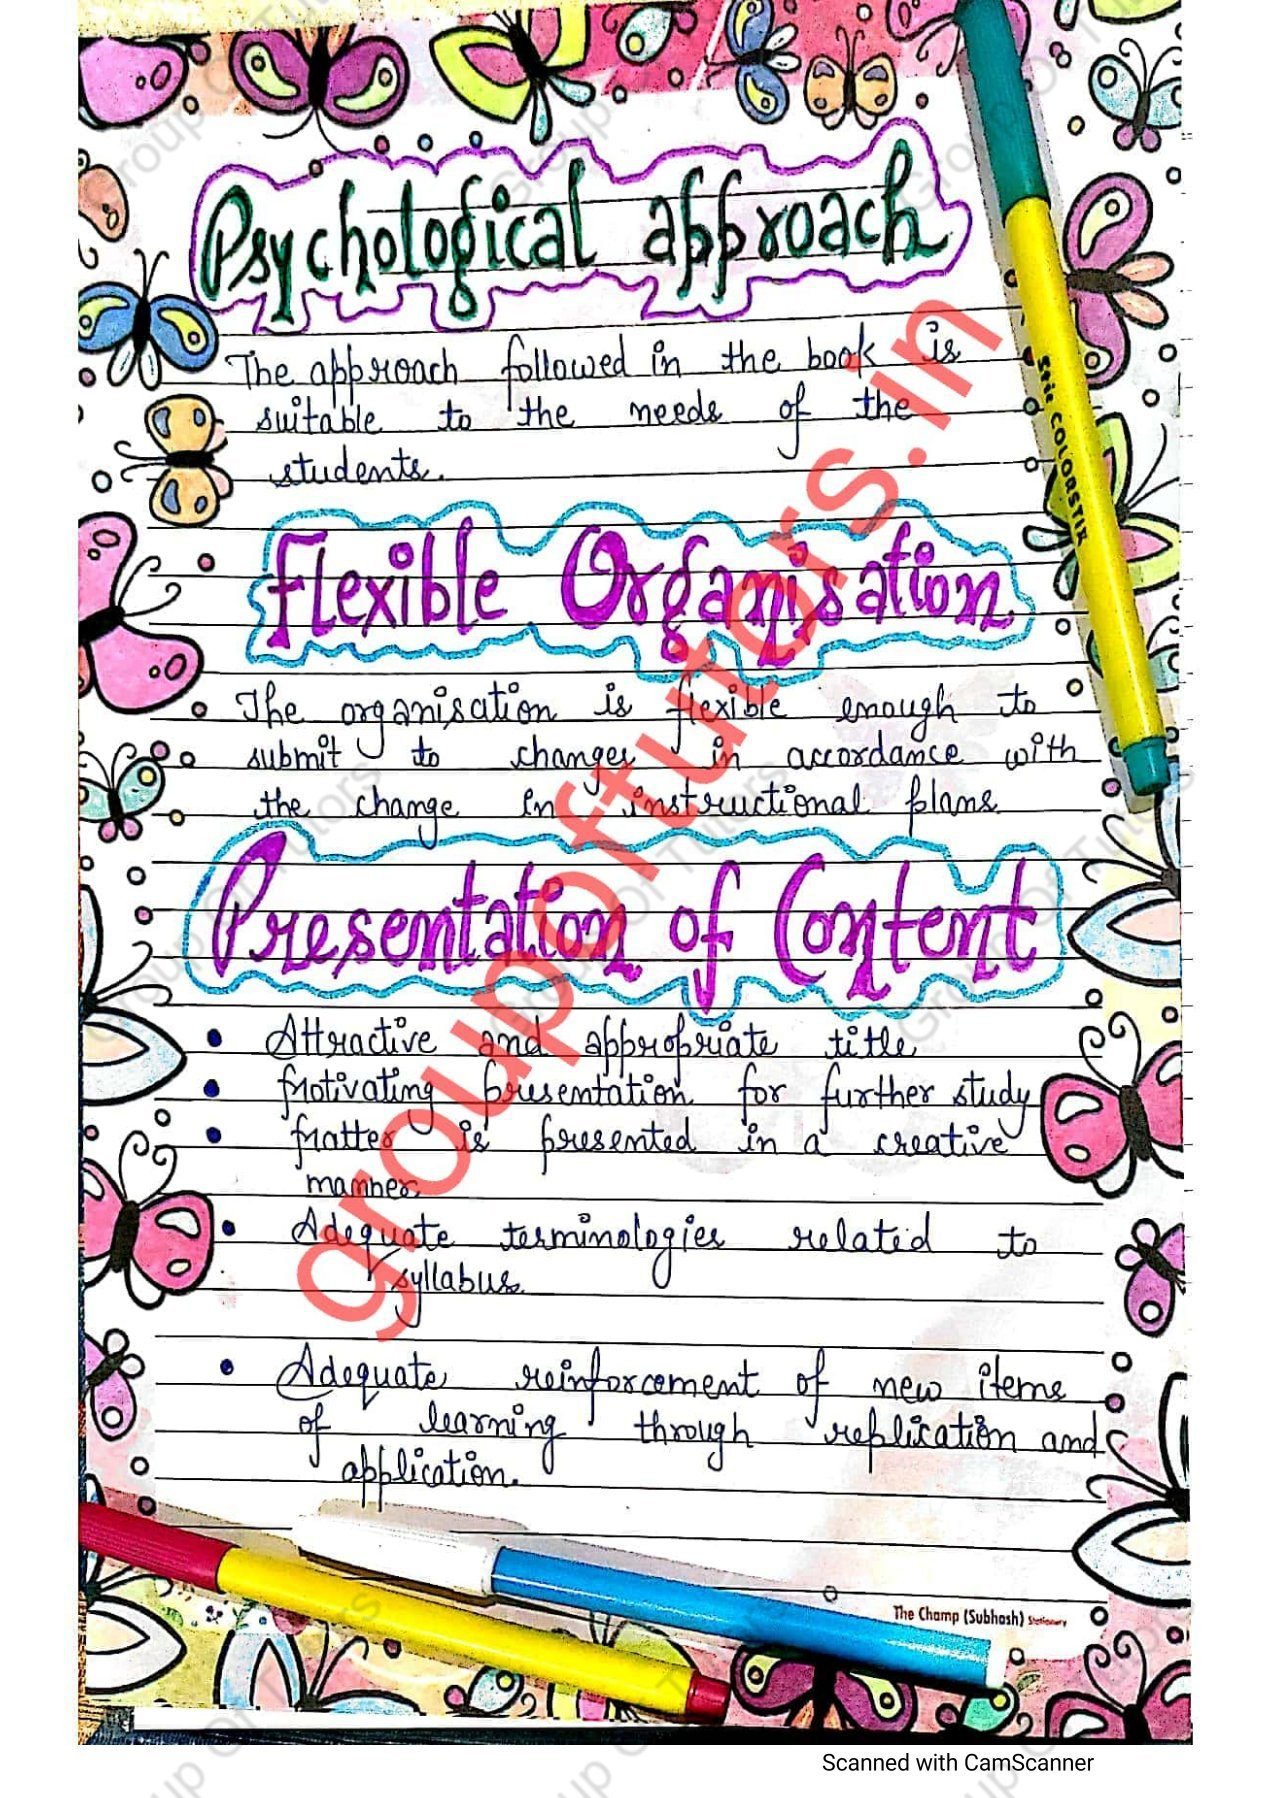 Psychological approach
The approach followed in the book is
suitable to the needs of the
students.
Flexible Organisation
The organisation is flexible enough to
submit to changes in accordance with
the change in instructional plans.
Presentation of Content
• Attractive and appropriate title
• Motivating presentation for further study
• Matter is presented in a creative
manner
• Adequate terminologies related to
syllabus.
• Adequate reinforcement of new items
of learning through replication and
application.
groupoftutors.in
Stic COLORSTIK
The Champ (Subhash) Stationary
Scanned with CamScanner
Group Of Tutors